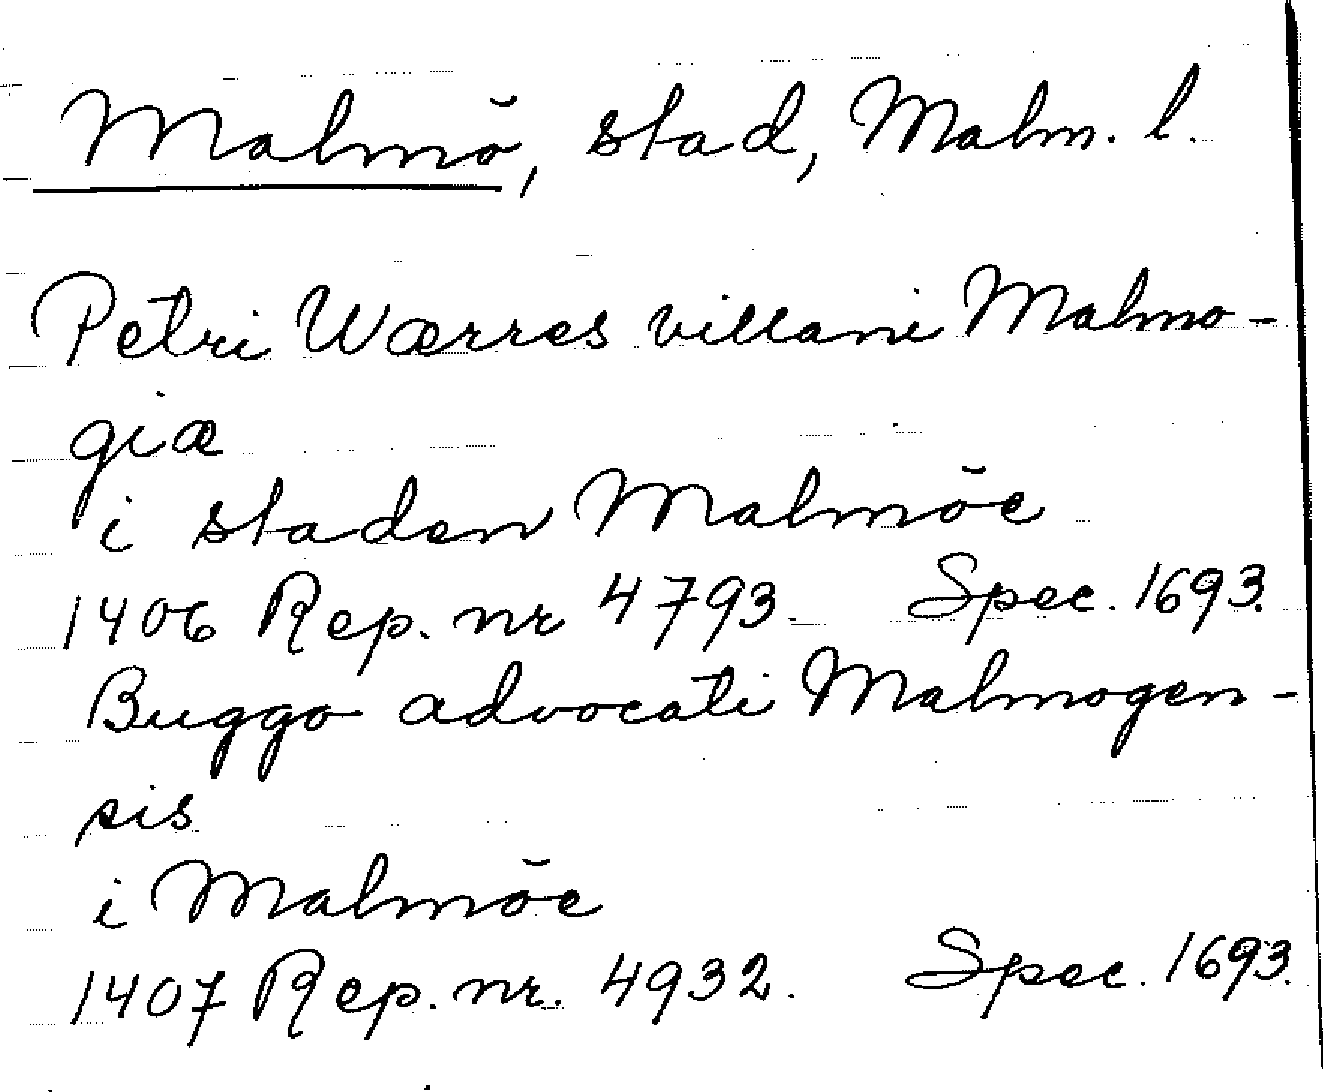 Malmö, stad, Malm. l.
Petri Wærres villani Malmo-
giæ
i staden Malmöe
1406 Rep. nr 4793. Spec. 1693.
Buggo advocati Malmogen-
sis
i Malmöe
1407 Rep. nr. 4932. Spec. 1693.